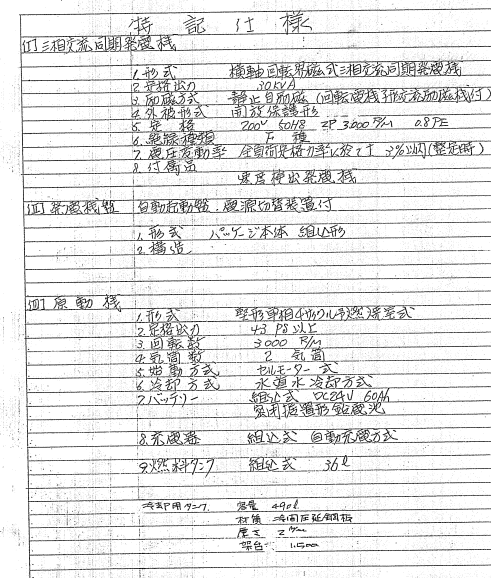 特記仕様
[I] 三相交流同期発電機
1. 形式 横軸回転界磁式三相交流同期発電機
2. 定格出力 30KVA
3. 励磁方式 静止自励磁 (回転電機子形交流励磁機付)
4. 外被形式 開放保護形
5. 定格 200V 50HZ 2P 3000 R/M 0.8PF
6. 絶縁種類 F種
7. 電圧変動率 全負荷定格力率に於て± 3%以内(整定時)
8. 付属品
速度検出発電機
[II] 発電機盤 自動起動盤、電源切替装置付
1. 形式 パッケージ本体 組込形
2. 構造
[III] 原動機
1. 形式
2. 定格出力 43 PS以上
3. 回転数 3000 R/M
4. 気筒数 2 気筒
5. 始動方式 セルモーター式
6. 冷却方式 水道水冷却方式
7. バッテリー 組込式 DC24V 60Ah
密閉据置形鉛電池
8. 充電器 組込式 自動充電方式
9. 燃料タンク 組込式 36ℓ
冷却用タンク 容量 490ℓ
材質 冷間圧延鋼板
厚さ 2 m/m
架台 1,500